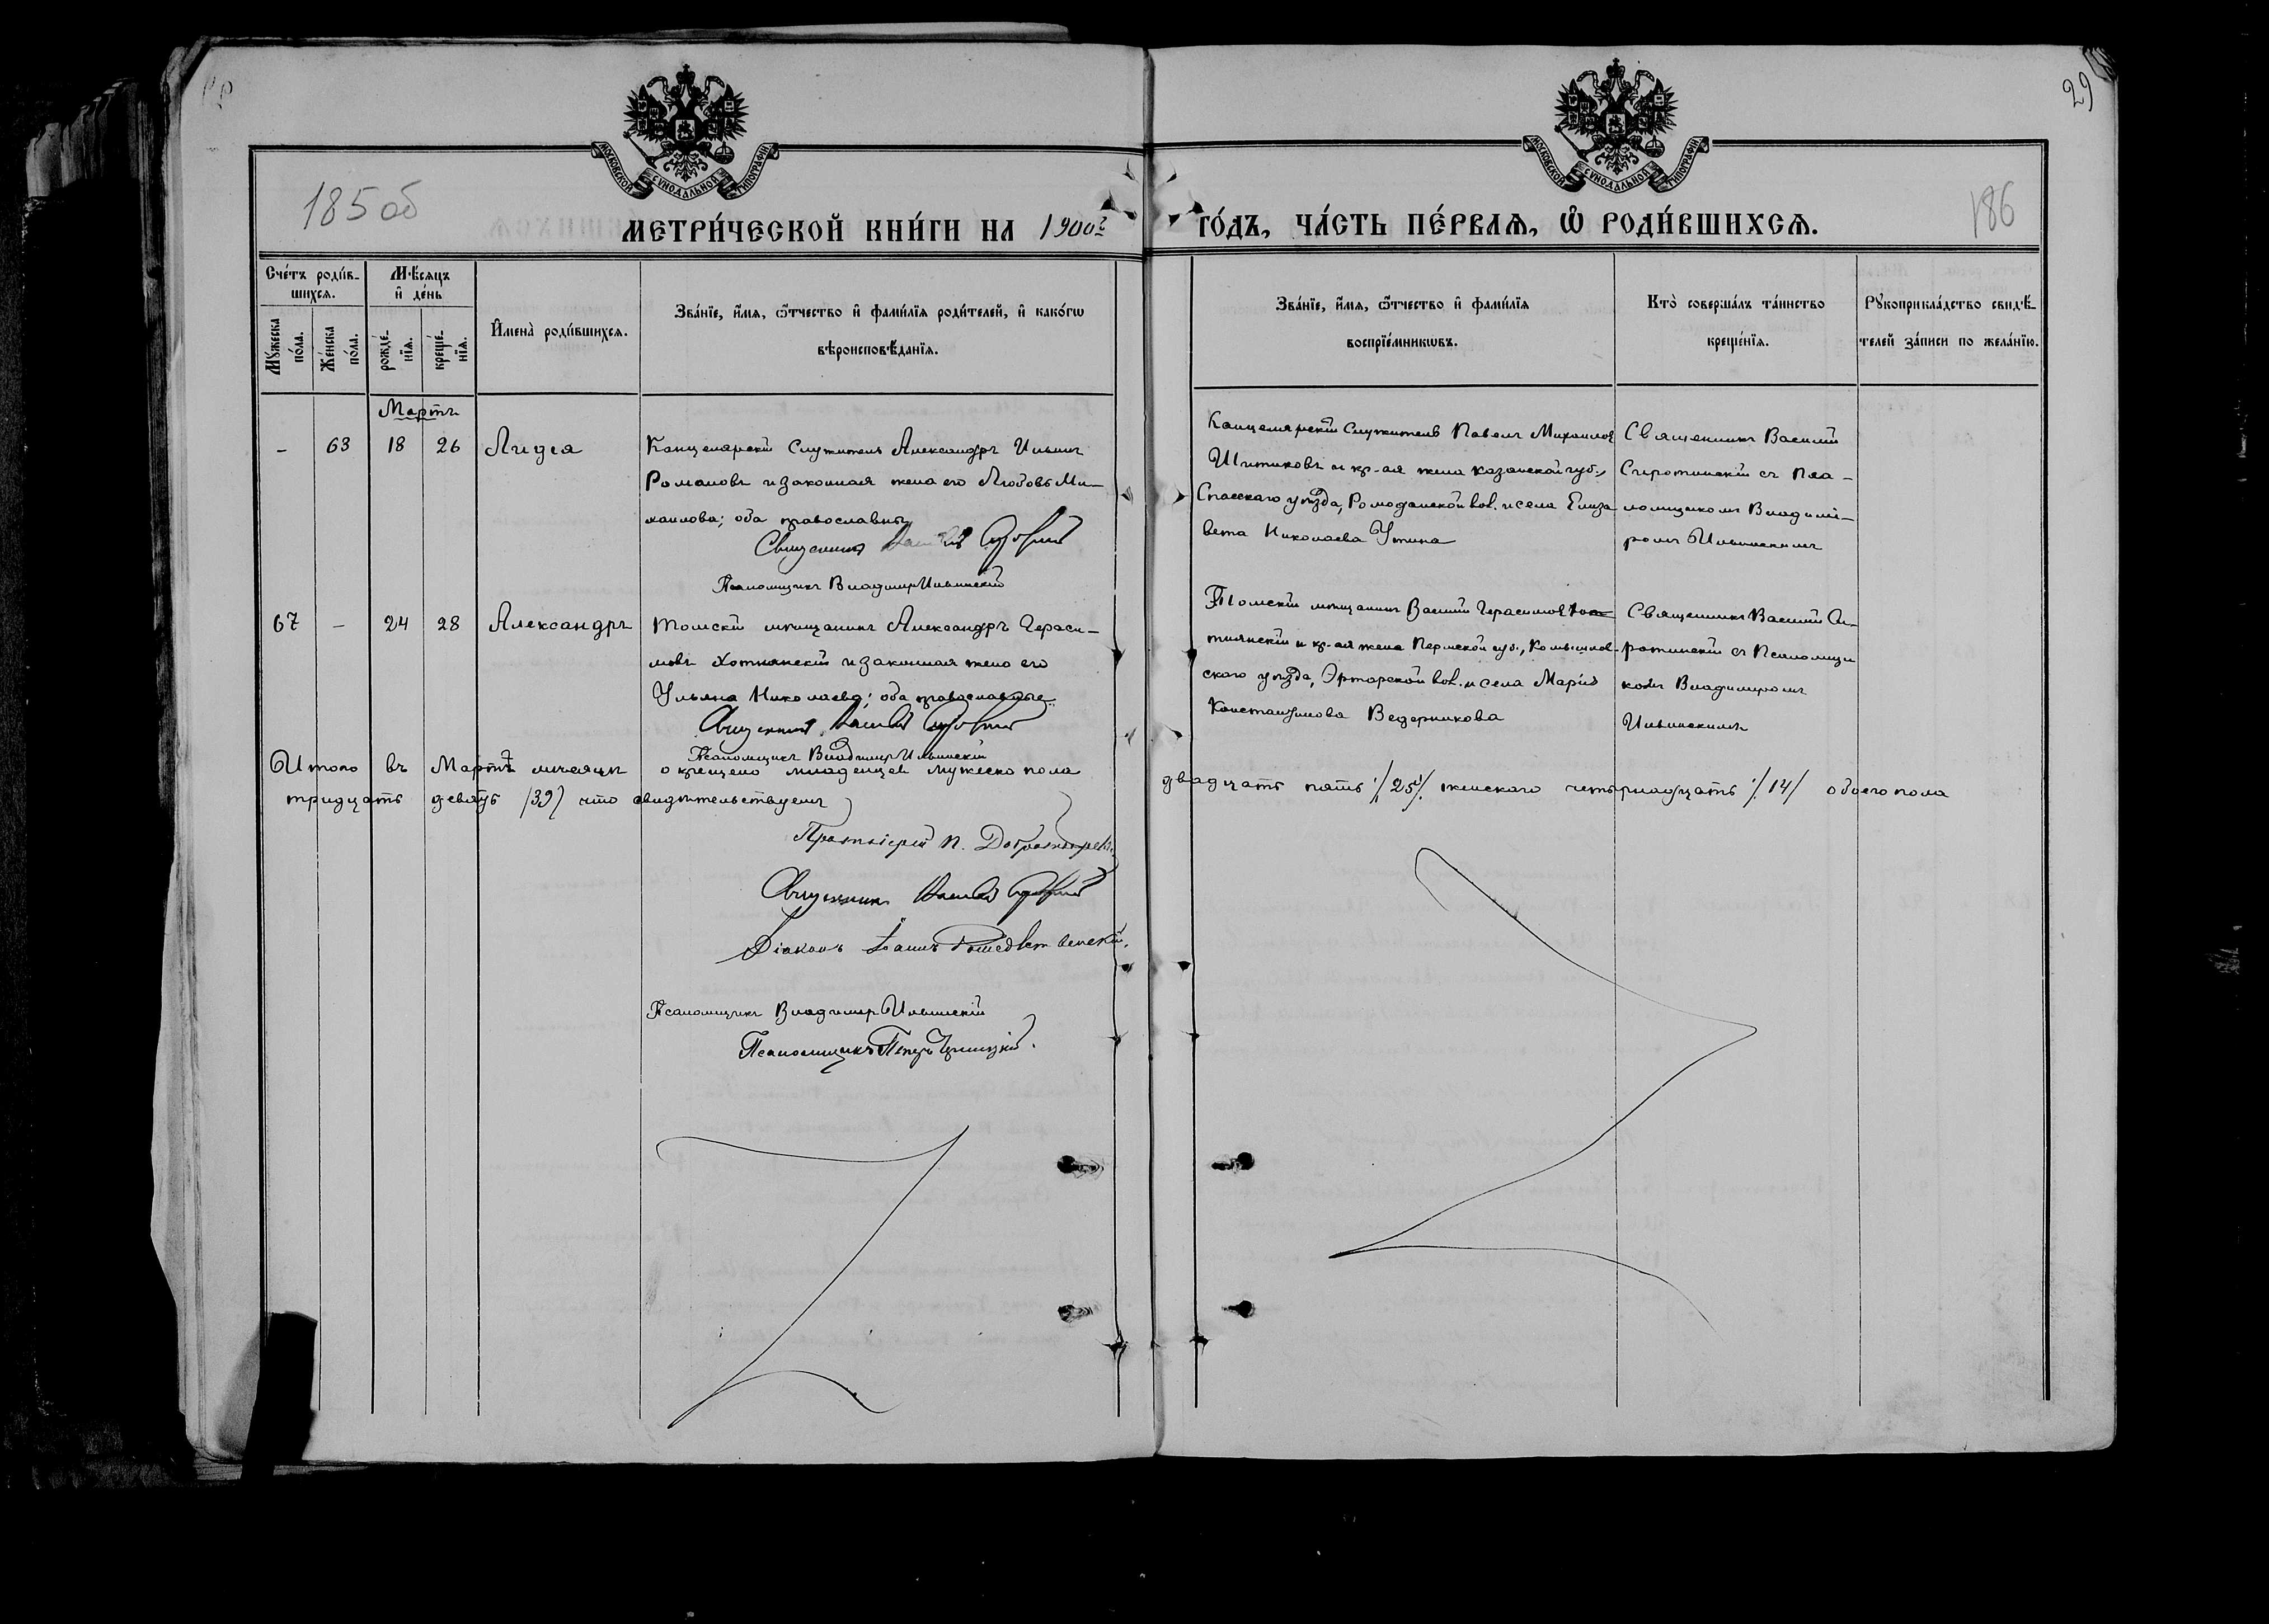 29
185 об
186
МОСКОВСКОЙ СѴНОДАЛЬНОЙ ТИПОГРАФІИ
МОСКОВСКОЙ СѴНОДАЛЬНОЙ ТИПОГРАФІИ
МЕТРИ́ЧЕСКОЙ КНИ́ГИ НА 1900 г
ГО́ДЪ, ЧА́СТЬ ПЕ́РВАѦ, Ѽ РОДИ́ВШИХСѦ.
Сче́тъ роди́в-
шихсѧ.
Мѣ́сяцъ
и҆ де́нь
Мꙋ́жеска
по́ла.
Же́нска
по́ла.
рожде́-
нїѧ.
креще́-
нїѧ.
И҆мена̀ роди́вшихсѧ.
Зва́нїе, и҆́мѧ, ѻ҆́тчество и҆ фами́лїѧ роди́телей, и҆ како́гѡ
вѣроисповѣ́данїѧ.
Зва́нїе, и҆́мѧ, ѻ҆́тчество и҆ фами́лїѧ
воспрїе́мникѡвъ.
Кто̀ соверша́лъ та́инство
креще́нїѧ.
Рꙋкоприкла́дство свидѣ́-
телей за́писи по жела́нїю.
Мартъ
- 63 18 26 Лидія
Канцелярскій Служитель Александръ Ильинъ
Романовъ и законная жена его Любовь Ми-
хаилова; оба православны
Священникъ Василій
Псаломщикъ Владиміръ Ильинскій
Канцелярскій Служитель Павелъ Михаиловъ
Шитиковъ и кр-ая жена Казанской губ.,
Спасскаго уѣзда, Ромодановской вол. и села Елиза
вета Николаева Утина
Священникъ Василій
Сиротинскій съ Пса-
ломщикомъ Владимі-
ромъ Ильинскимъ
67 - 24 28 Александръ
Томскій мѣщанинъ Александръ Гераси-
мовъ Хотнянскій и законная жена его
Ульяна Николаева; оба православные
Священникъ Василій
Псаломщикъ Владиміръ Ильинскій
Томскій мѣщанинъ Василій Герасимовъ Хот
нянскій и кр-ая жена Пермской губ., Камышлов-
скаго уѣзда, вол. и села Марія
Константинова Ведерникова
Священникъ Василій Си-
ротинскій съ Псаломщи
комъ Владиміромъ
Ильинскимъ
Итого въ Мартѣ мѣсяцѣ окрещено младенцевъ мужеско пола двадцать пять /25/ женскаго четырнадцать /14/ обоего пола
тридцать девять /39/ что свидѣтельствуемъ
Протоіерей П.
Священникъ Василій
Діаконъ Іоаннъ Рождественскій.
Псаломщикъ Владиміръ Ильинскій
Псаломщикъ Петръ